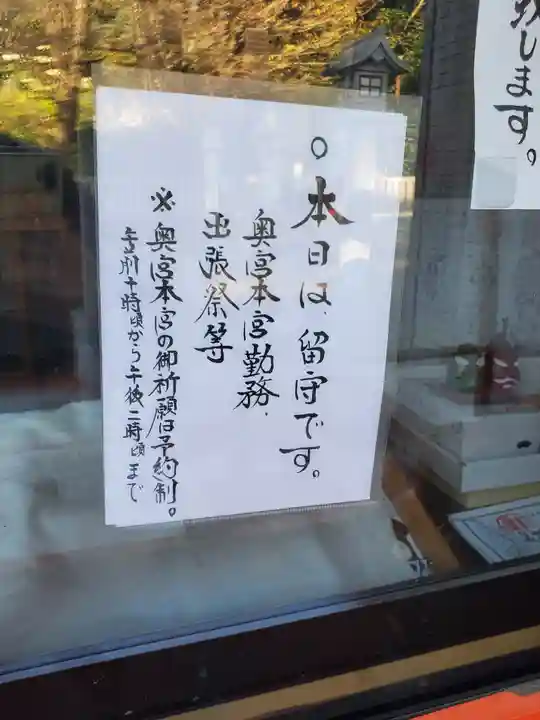 致します。
○本日は、留守です。
奥宮本宮勤務、
出張祭等
※奥宮本宮の御祈願は予約制。
午前十時頃から午後二時頃まで